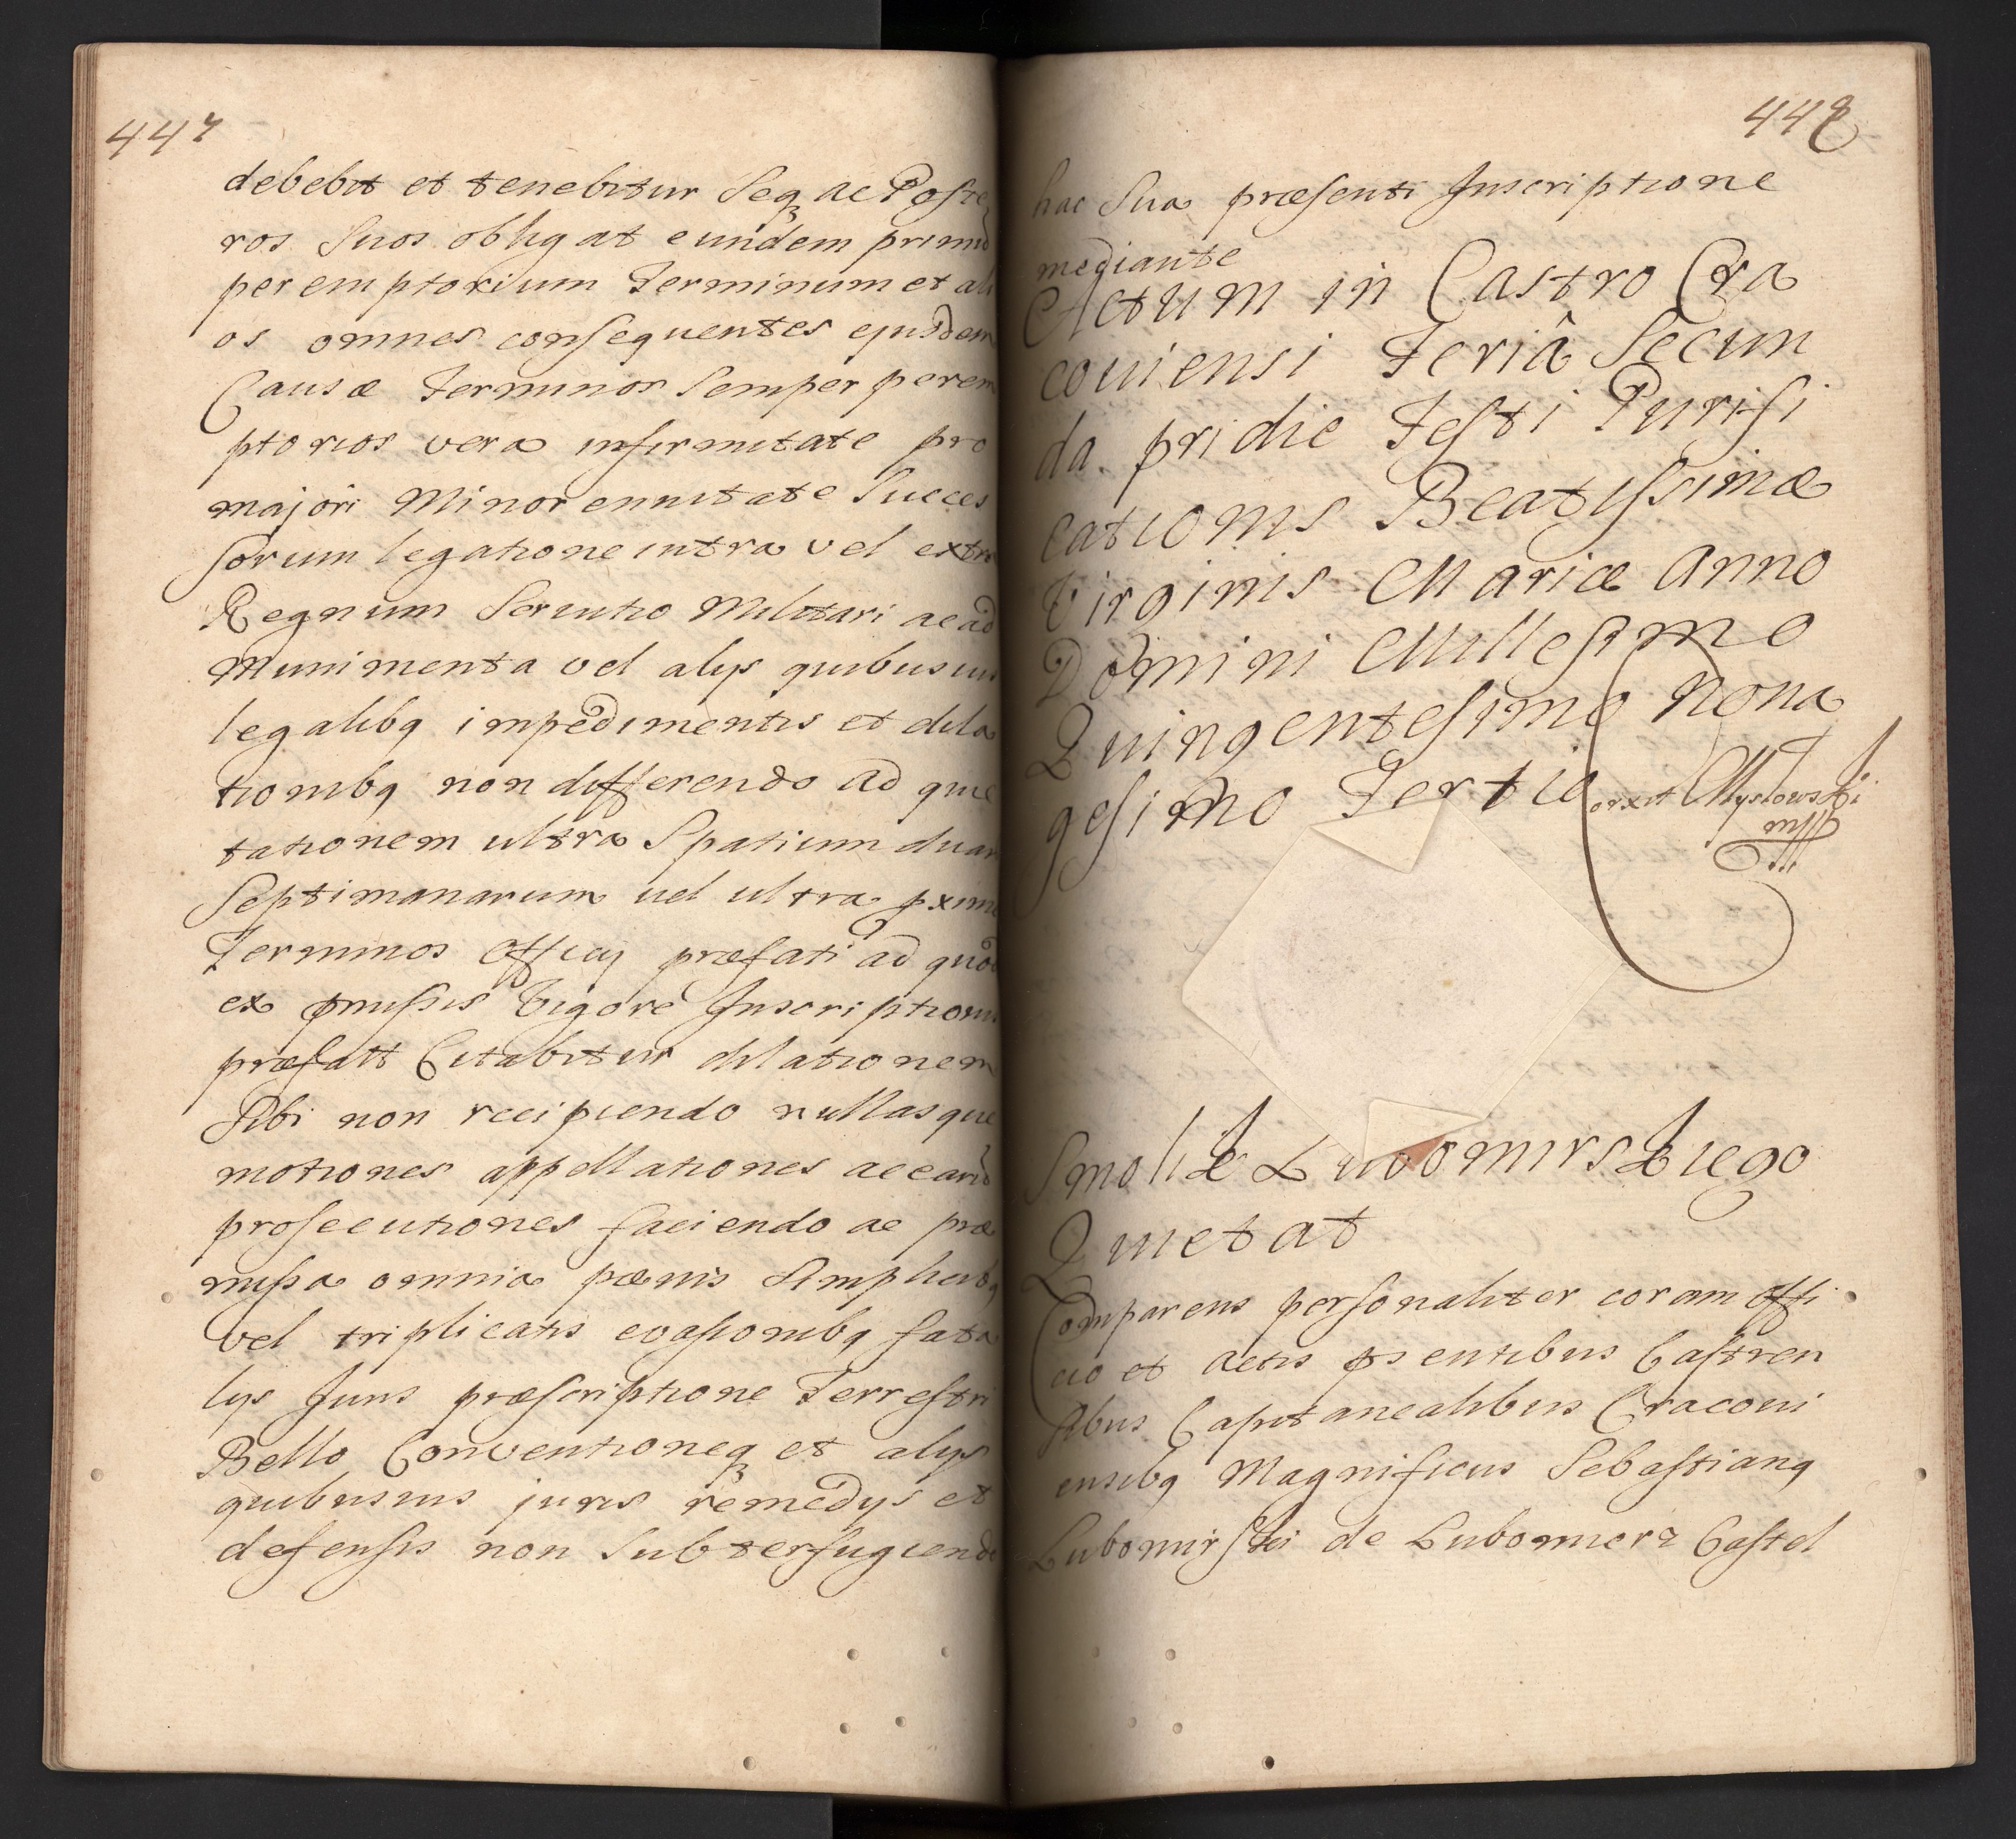 447
debebit et tenebitur Seqz ac Poste
ros Suos obligat eundem primu
peremptorium Terminum et ali
os omnes consequentes ejusdem
Causæ Terminos Semper perem
ptorios vera infirmitate pro
majori Minorennitate Succes
sorum legatione intra vel extra
Regnum Servitio Militari ac ad
Munimenta vel alijs quibusuis
legalibq impedimentis et dila
tionibq non differendo ad quie
tationem ultra Spatium duar
Septimanarum vel ultra pximi
Terminos Officij præfati ad quod
ex pmissis Vigore Inscriptioni
præfatt Citabitur dilationem
Sibi non recipiendo nullasque
motiones appellationes ac earud
prosecutiones faciendo ac præ
missa omnia pænis Simplicibq
vel triplicatis evasionibq fata
lijs Juris præscriptione Terrestri
Bello Conventioneqz et alijs
quibusuis juris remedijs et
defensis non Subterfugiendo
448
hac Sua præsenti Inscriptione
mediante
Actum in Castro Cra
couiensi Feriâ Secun
da pridie Festi Purifi
cationis Beatissimæ
Virginis Mariæ Anno
Domini Millesimo
Quingentesimo Nona
gesimo Tertio
orxit Mysłowski
mpp
Smolik Lubomirskiego
Quietat
Comparens personaliter coram offi
cio et actis psentibus Castren
sibus Capitanealibus Cracoui
ensibq Magnificus Sebastianq
Lubomirski de Lubomierz Castel